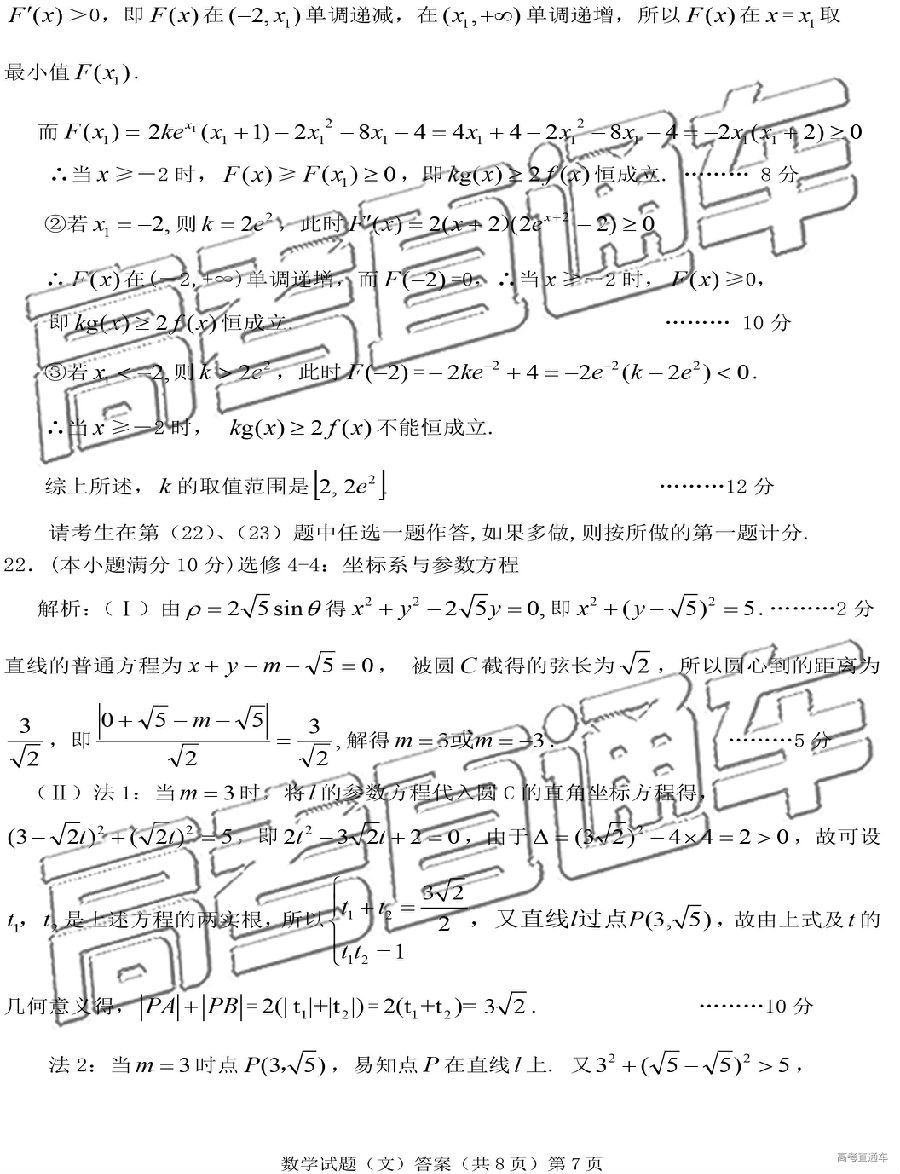 F′(x)>0，即 F(x) 在 (−2, x₁) 单调递减，在 (x₁, +∞) 单调递增，所以 F(x) 在 x = x₁ 取
最小值 F(x₁).
而 F(x₁) = 2ke^{x₁}(x₁+1) − 2x₁² − 8x₁ − 4 = 4x₁ + 4 − 2x₁² − 8x₁ − 4 = −2x₁(x₁+2) ≥ 0
∴当 x ≥ −2 时， F(x) ≥ F(x₁) ≥ 0，即 kg(x) ≥ 2f(x) 恒成立. ……… 8 分
②若 x₁ = −2, 则 k = 2e²，此时 F′(x) = 2(x+2)(2e^{x−2} − 2) ≥ 0
∴ F(x) 在 (−2,+∞) 单调递增，而 F(−2) =0，∴当 x ≥ −2 时， F(x) ≥0，
即 kg(x) ≥ 2f(x) 恒成立. ……… 10 分
③若 x₁ < −2, 则 k > 2e²，此时 F(−2) = −2ke^{−2} + 4 = −2e^{−2}(k − 2e²) < 0.
∴当 x ≥ −2 时， kg(x) ≥ 2f(x) 不能恒成立.
综上所述，k 的取值范围是 [2, 2e²]. ………12 分
请考生在第（22）、（23）题中任选一题作答,如果多做,则按所做的第一题计分.
22．(本小题满分 10 分)选修 4-4：坐标系与参数方程
解析:（Ⅰ）由 ρ = 2√5 sin θ 得 x² + y² − 2√5y = 0, 即 x² + (y − √5)² = 5. ………2 分
直线的普通方程为 x + y − m − √5 = 0， 被圆 C 截得的弦长为 √2，所以圆心到的距离为
3/√2，即 |0 + √5 − m − √5|/√2 = 3/√2, 解得 m = 3或m = −3. ………5 分
（Ⅱ）法 1：当 m = 3 时，将 l 的参数方程代入圆 C 的直角坐标方程得，
(3 − √2t)² + (√2t)² = 5，即 2t² − 3√2t + 2 = 0，由于 Δ = (3√2)² − 4×4 = 2 > 0，故可设
t₁，t₂ 是上述方程的两实根，所以 {t₁ + t₂ = 3√2/2, t₁t₂ = 1，又直线l过点P(3,√5)，故由上式及 t 的
几何意义得，|PA| + |PB| = 2(|t₁|+|t₂|) = 2(t₁+t₂)= 3√2. ………10 分
法 2：当 m = 3 时点 P(3,√5)，易知点 P 在直线 l 上. 又 3² + (√5 − √5)² > 5，
数学试题（文）答案（共 8 页）第 7 页
高考直通车
高考直通车
高考直通车